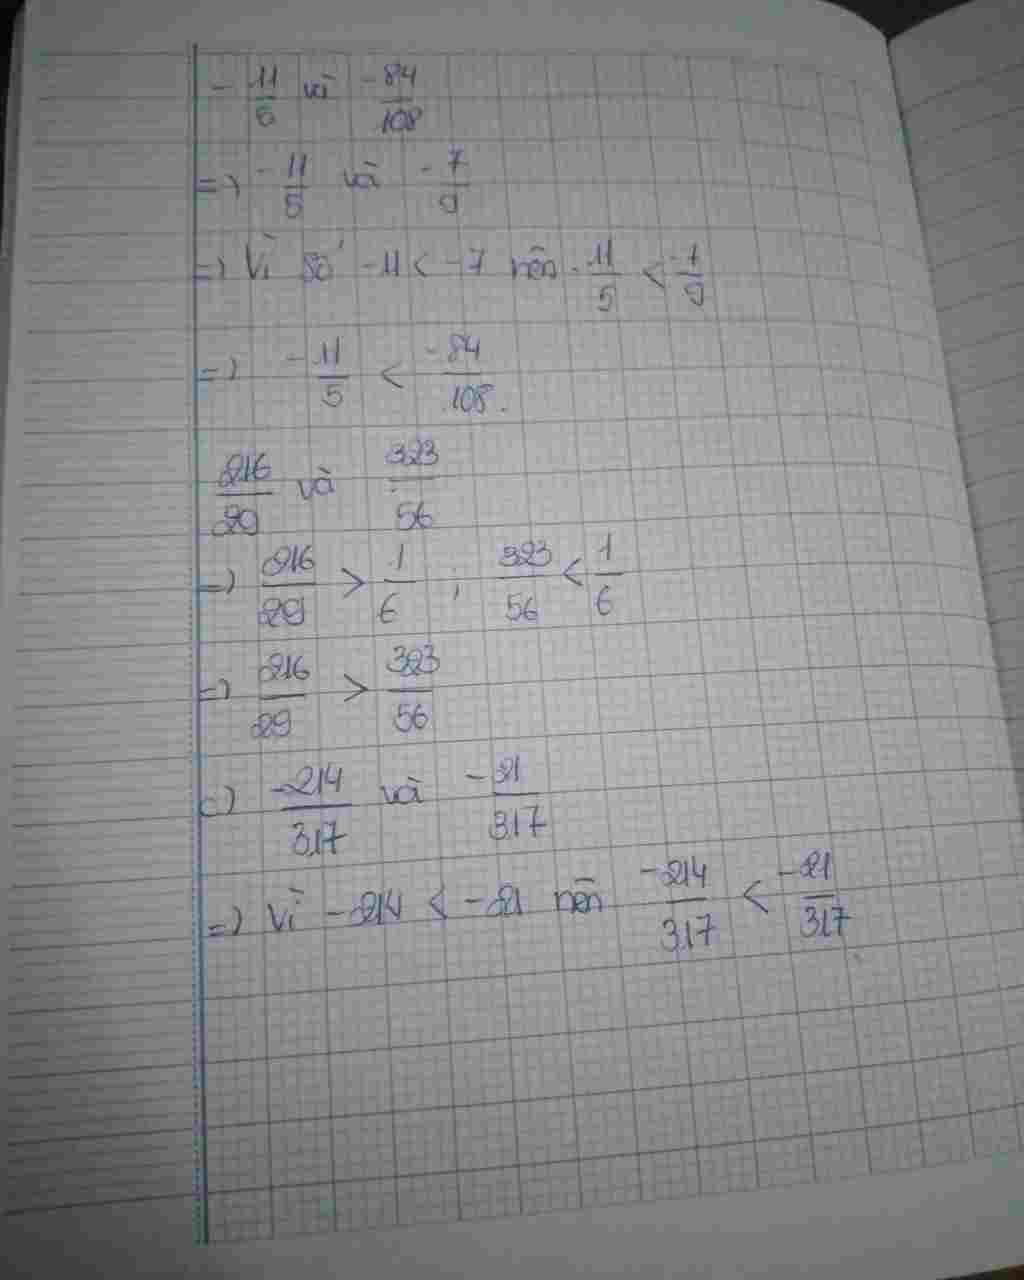 - 11/5 và -84/108
=) -11/5 và -7/9
=) Vì số -11 < -7 nên -11/5 < -7/9
=) -11/5 < -84/108.
216/29 và 323/56
=) 216/29 > 1/6 ; 323/56 < 1/6
=) 216/29 > 323/56
c) -214/317 và -21/317
=) Vì -214 < -21 nên -214/317 < -21/317